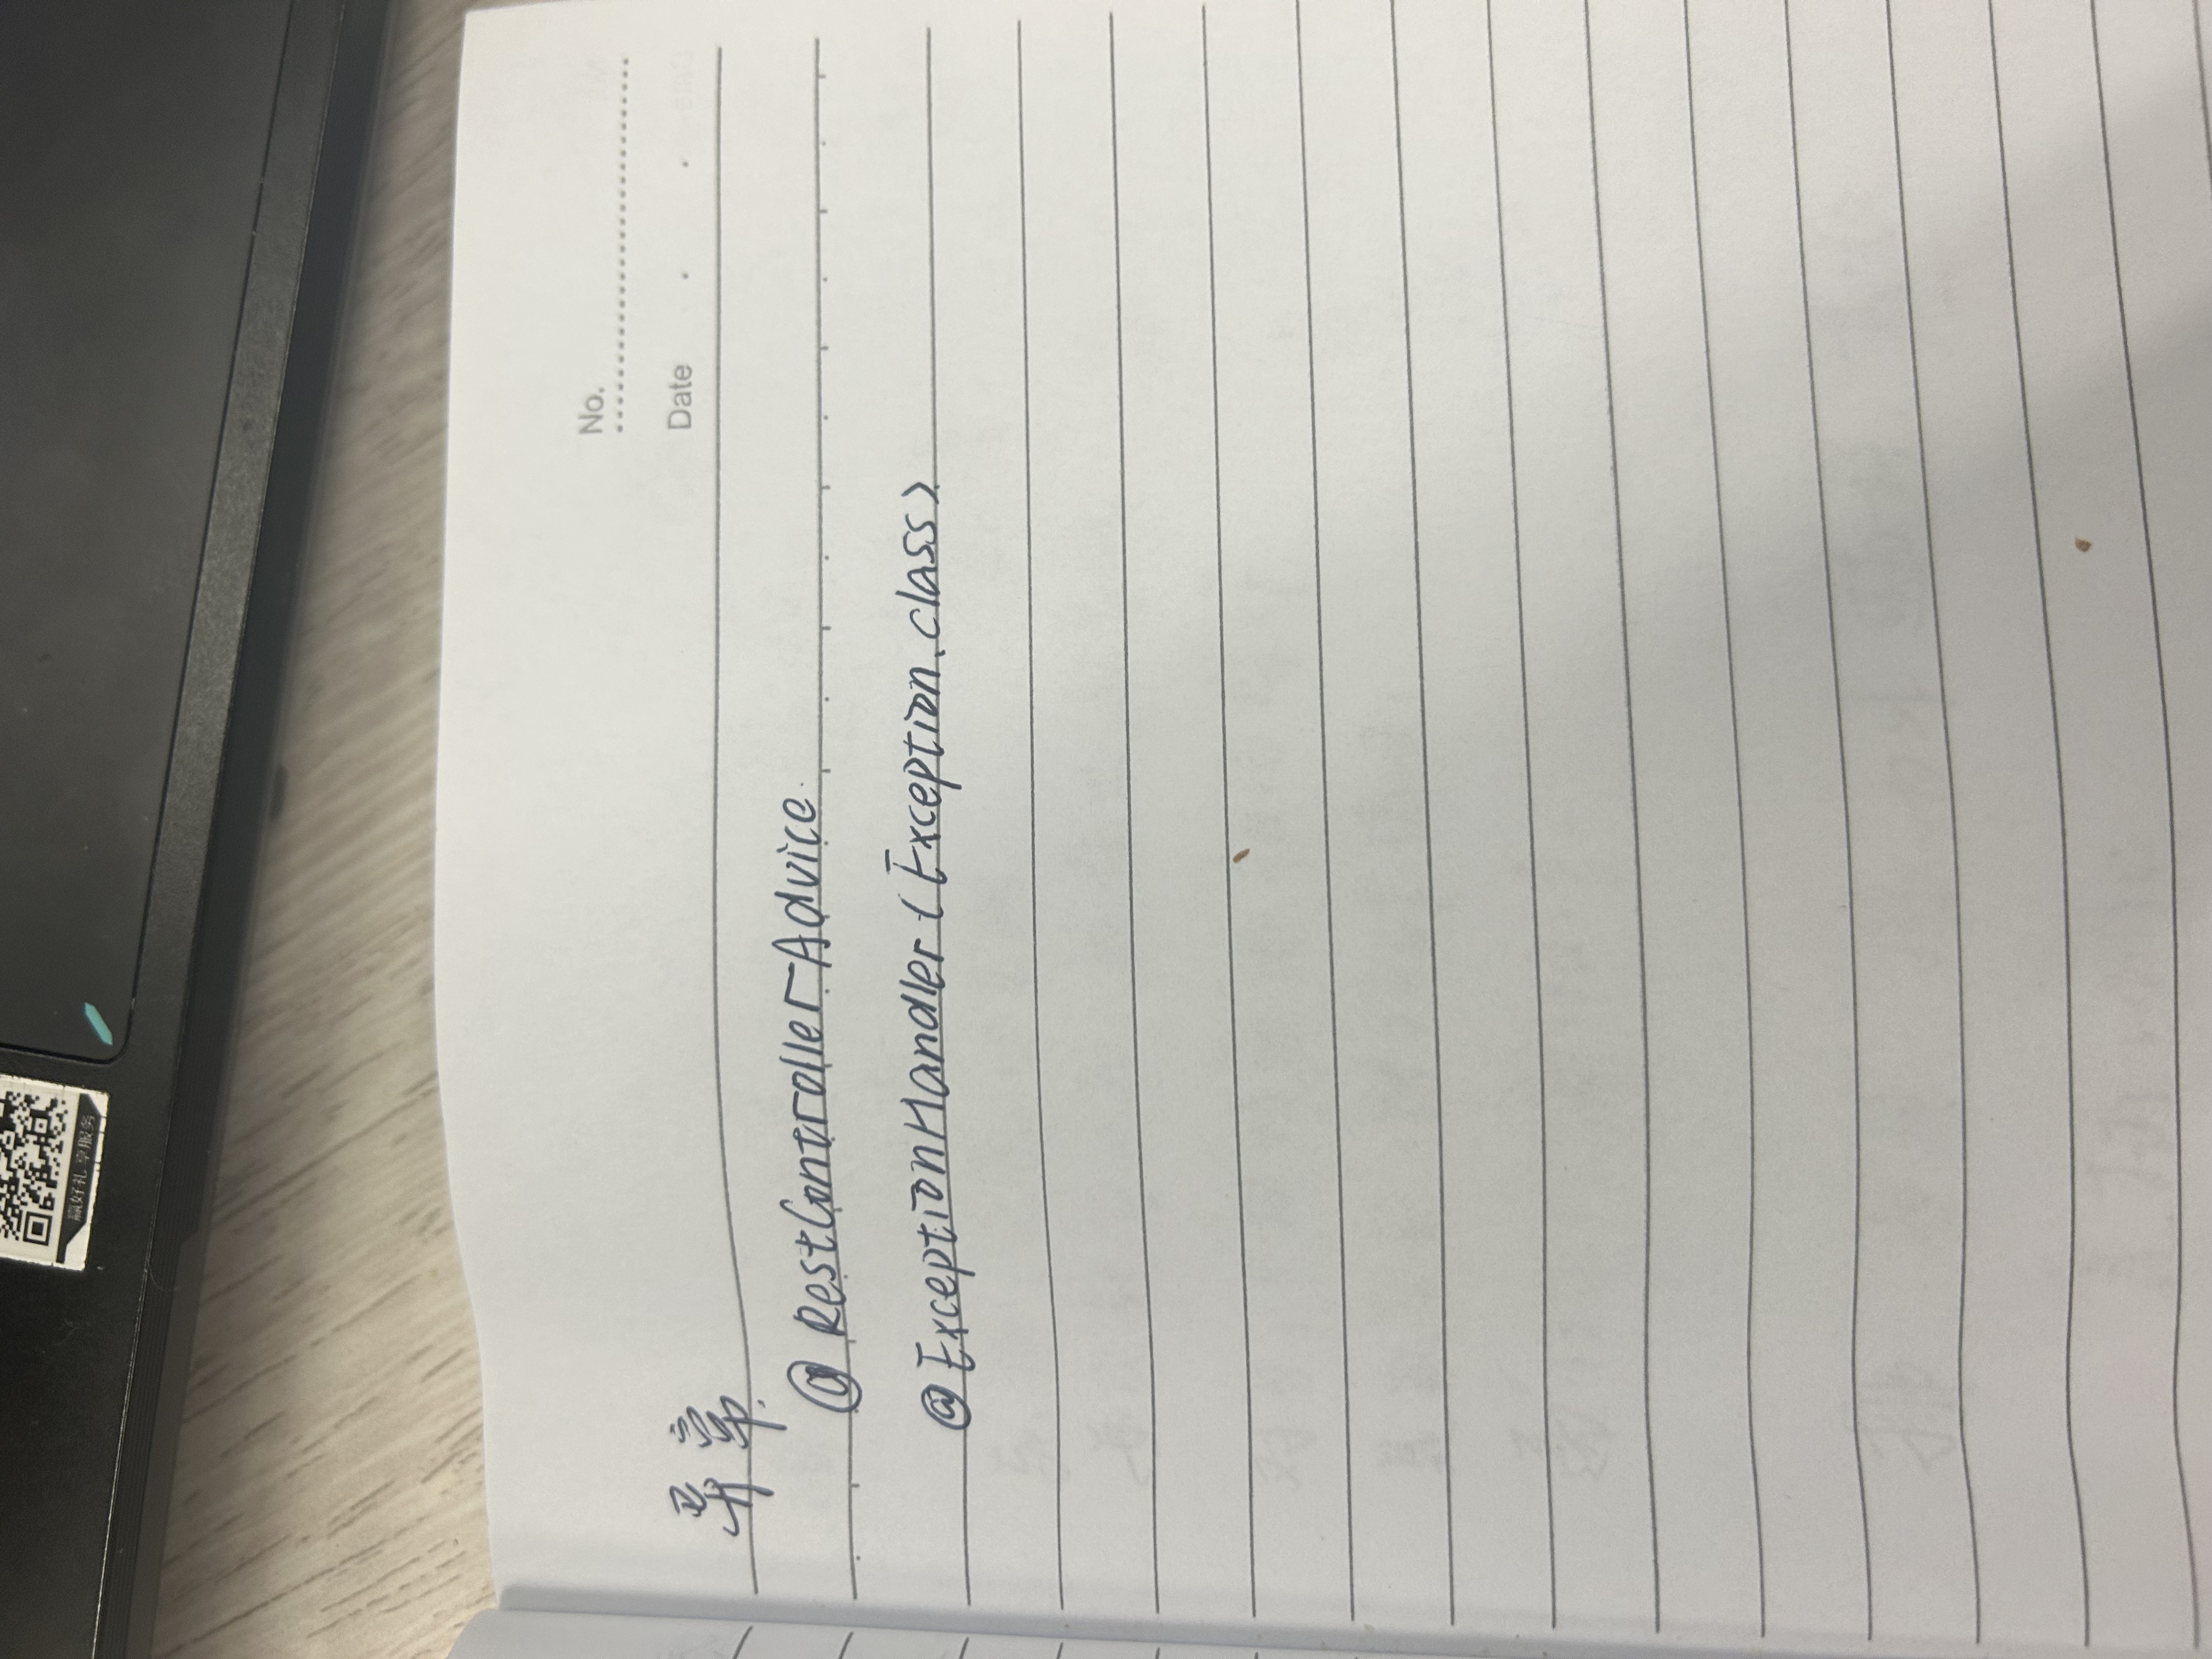 赢好礼 享服务
No.
Date
异常
@RestControllerAdvice
@ExceptionHandler(Exception.class)